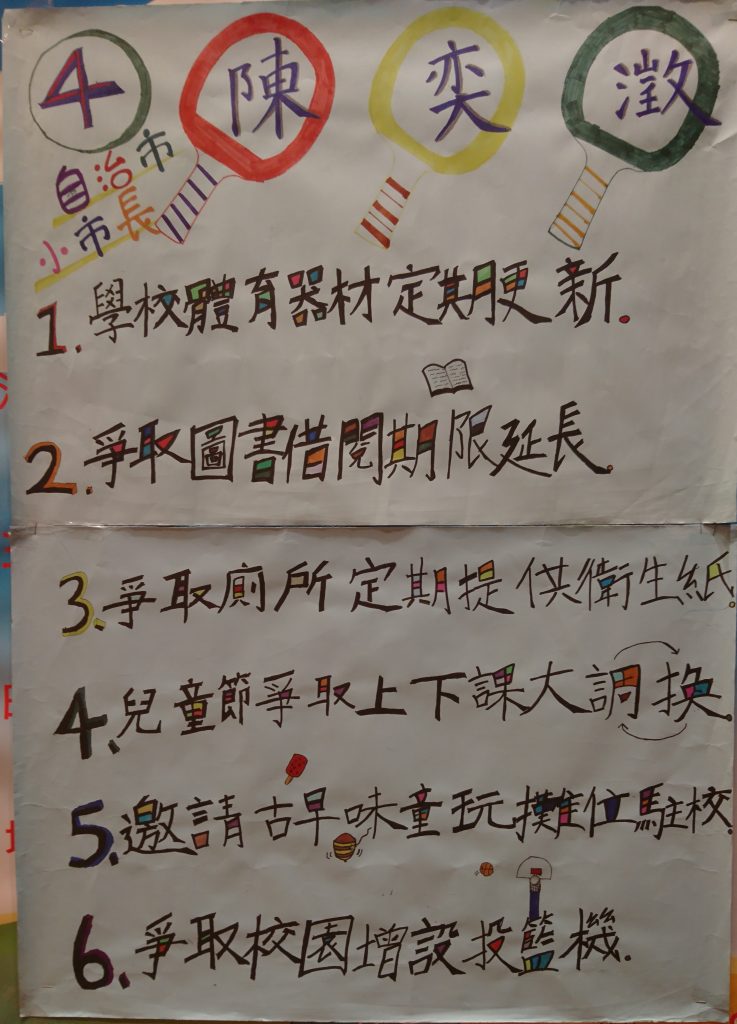 4 陳奕澂
自治市
小市長
1. 學校體育器材定期更新.
2. 爭取圖書借閱期限延長.
3. 爭取廁所定期提供衛生紙.
4. 兒童節爭取上下課大調換.
5. 邀請古早味童玩攤位駐校.
6. 爭取校園增設投籃機.